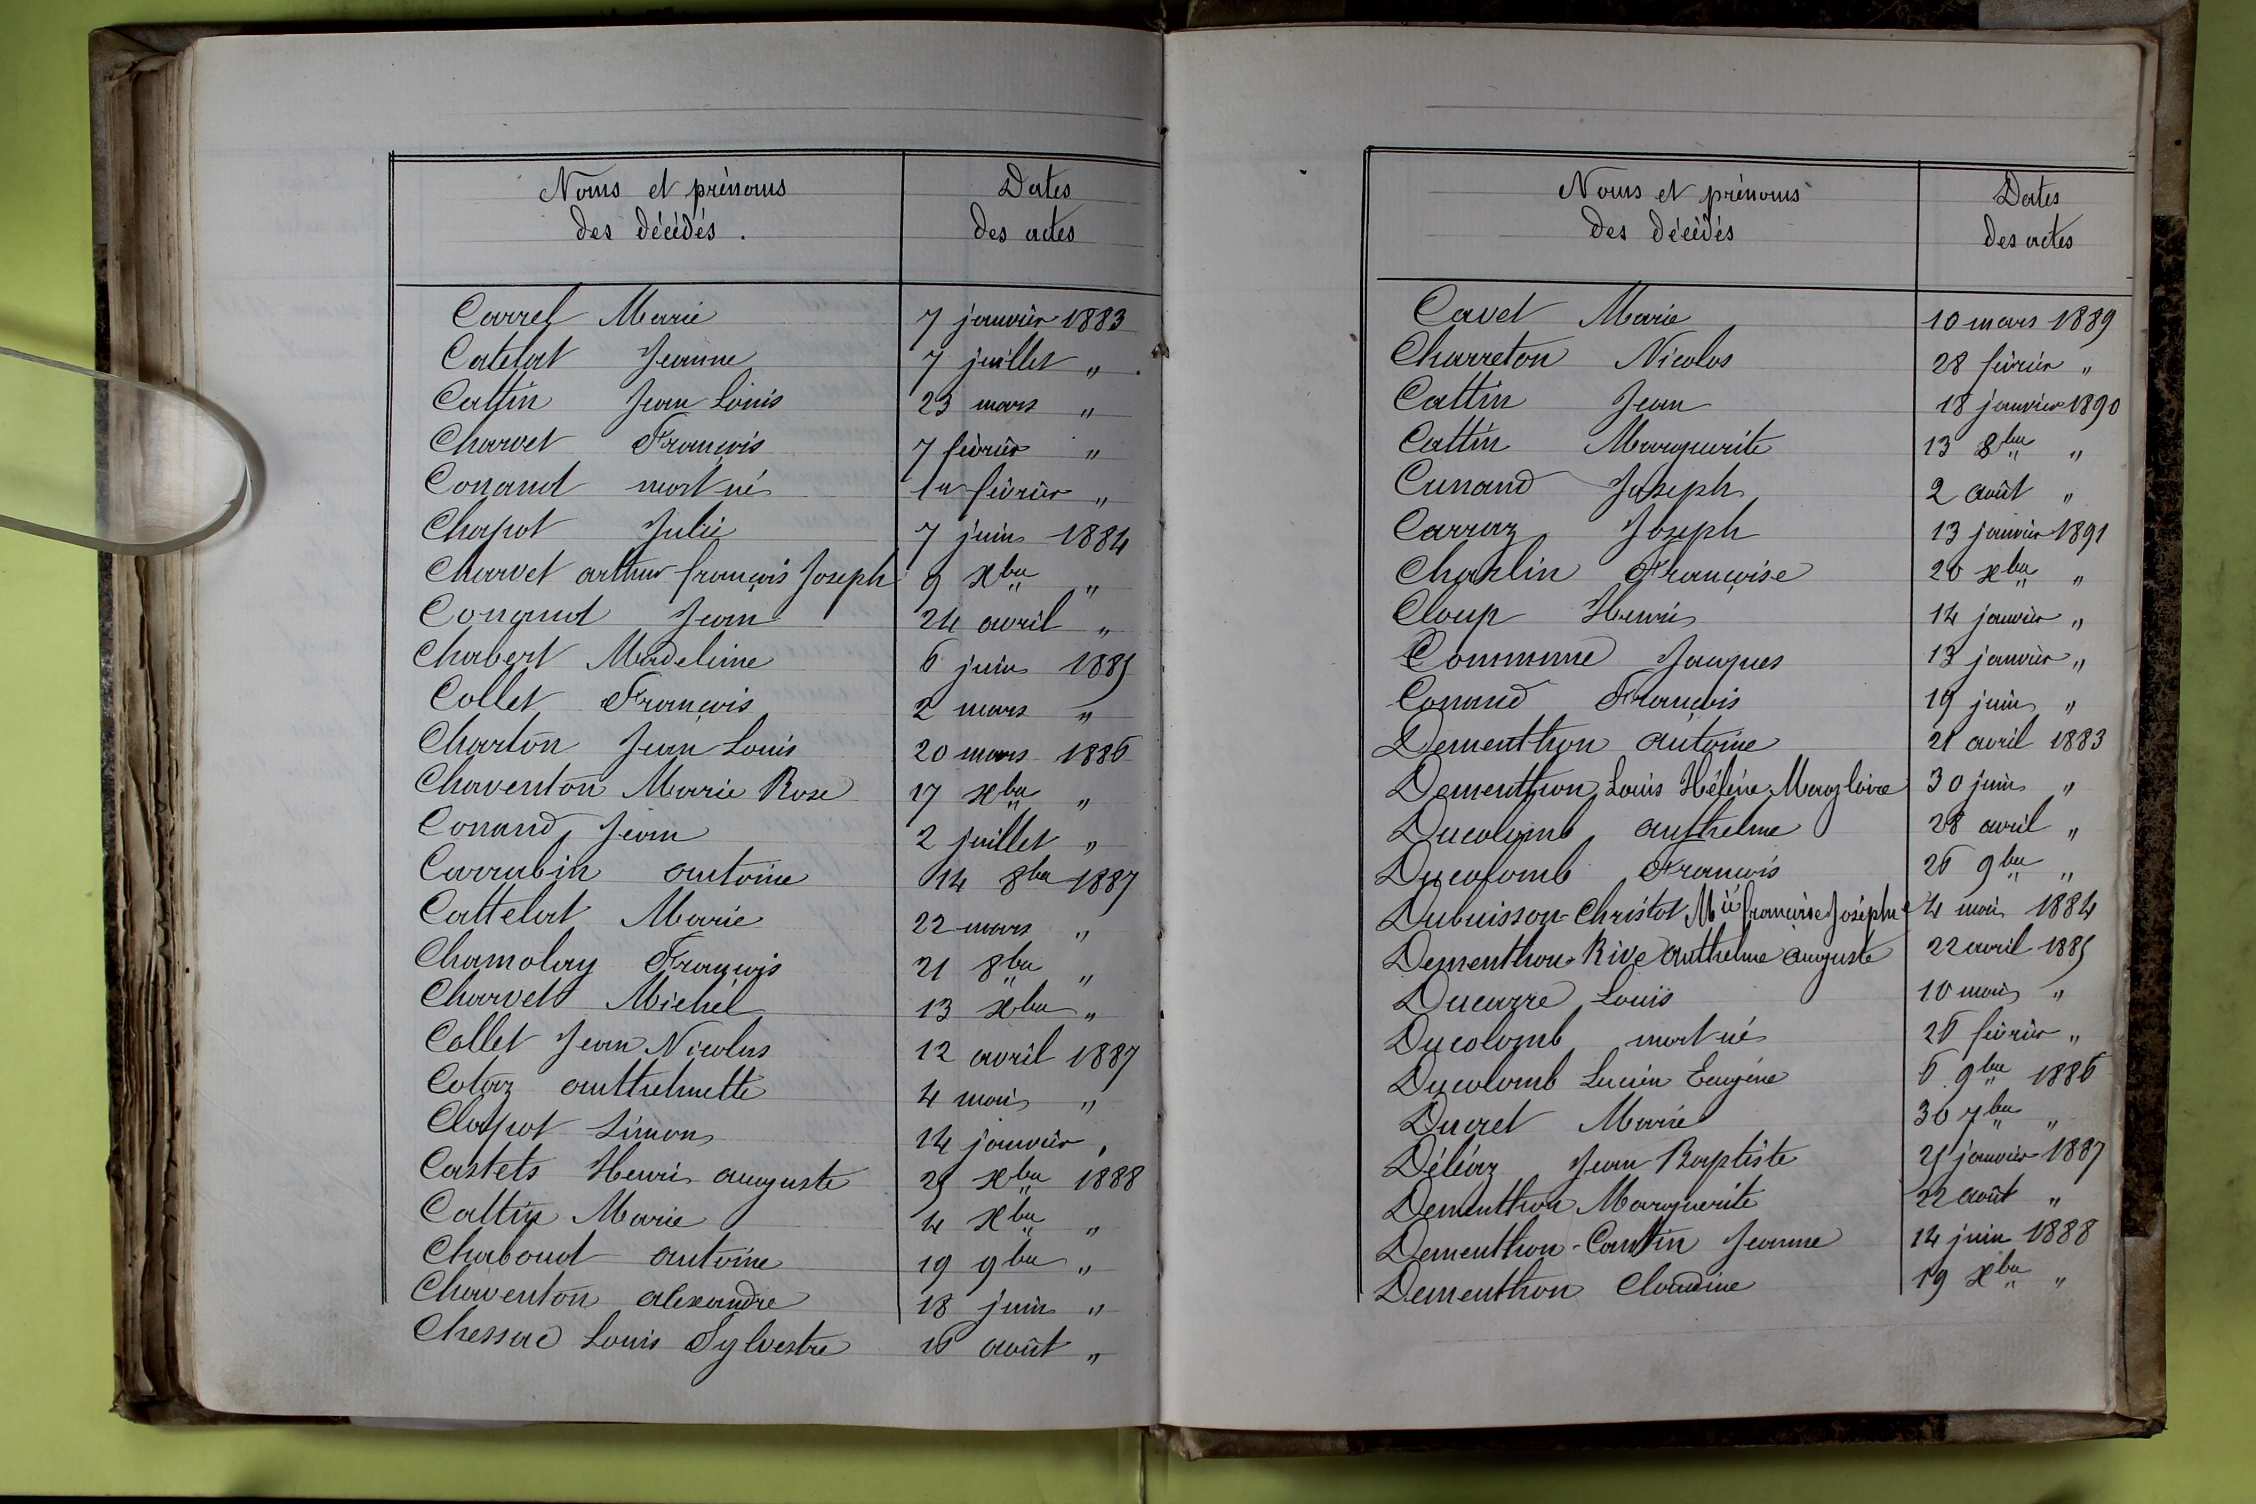 Noms et prénoms Dates
des décédés. des actes
Carrel Marie 7 janvier 1883
Catelat Jeanne 7 juillet "
Cattin Jean Louis 23 mars "
Charvet François 7 février "
Conand mort né 1er février "
Chapot Julie 7 juin 1884
Charvet arthur françois Joseph 9 xbre "
Conand Jean 24 avril "
Chabert Madeleine 6 juin 1885
Collet François 2 mars "
Charton Jean Louis 20 mars 1886
Chaventon Marie Rose 17 xbre "
Conand Jean 2 juillet "
Carrabin antoine 14 8bre 1887
Cattelat Marie 22 mars "
Chamolay François 21 8bre "
Charvet Michel 13 xbre "
Collet Jean Nicolas 12 avril 1887
Cotaz anthelmette 4 mai "
Chapot Simon 14 janvier "
Castets Henri auguste 25 xbre 1888
Cattin Marie 4 xbre "
Chaboud antoine 19 9bre "
Chaventon alexandre 18 juin "
Chessac Louis Sylvestre 16 août "
Noms et prénoms Dates
des décédés des actes
Cavet Marie 10 mars 1889
Charreton Nicolas 28 février "
Cattin Jean 18 janvier 1890
Cattin Marguerite 13 8bre "
Cunand Joseph 2 août "
Carraz Joseph 13 janvier 1891
Charlin Françoise 20 xbre "
Cloup Henri 14 janvier "
Commune Jacques 13 janvier "
Conand François 19 juin "
Dementhon antoine 21 avril 1883
Dementhon Louis Hélène Magloire 30 juin "
Ducolomb anthelme 28 avril "
Ducolomb François 26 9bre "
Dubuisson-Christot Mie françoise Joséphe 4 mai 1884
Dementhon-Rive anthelme auguste 22 avril 1885
Ducarre Louis 10 mai "
Ducolomb mort né 26 février "
Ducolomb Lucien Eugène 6 9bre 1886
Ducret Marie 30 7bre "
Déléaz Jean Baptiste 25 janvier 1887
Dementhon Marguerite 22 août "
Dementhon-Cantin Jeanne 14 juin 1888
Dementhon Claudine 19 xbre "